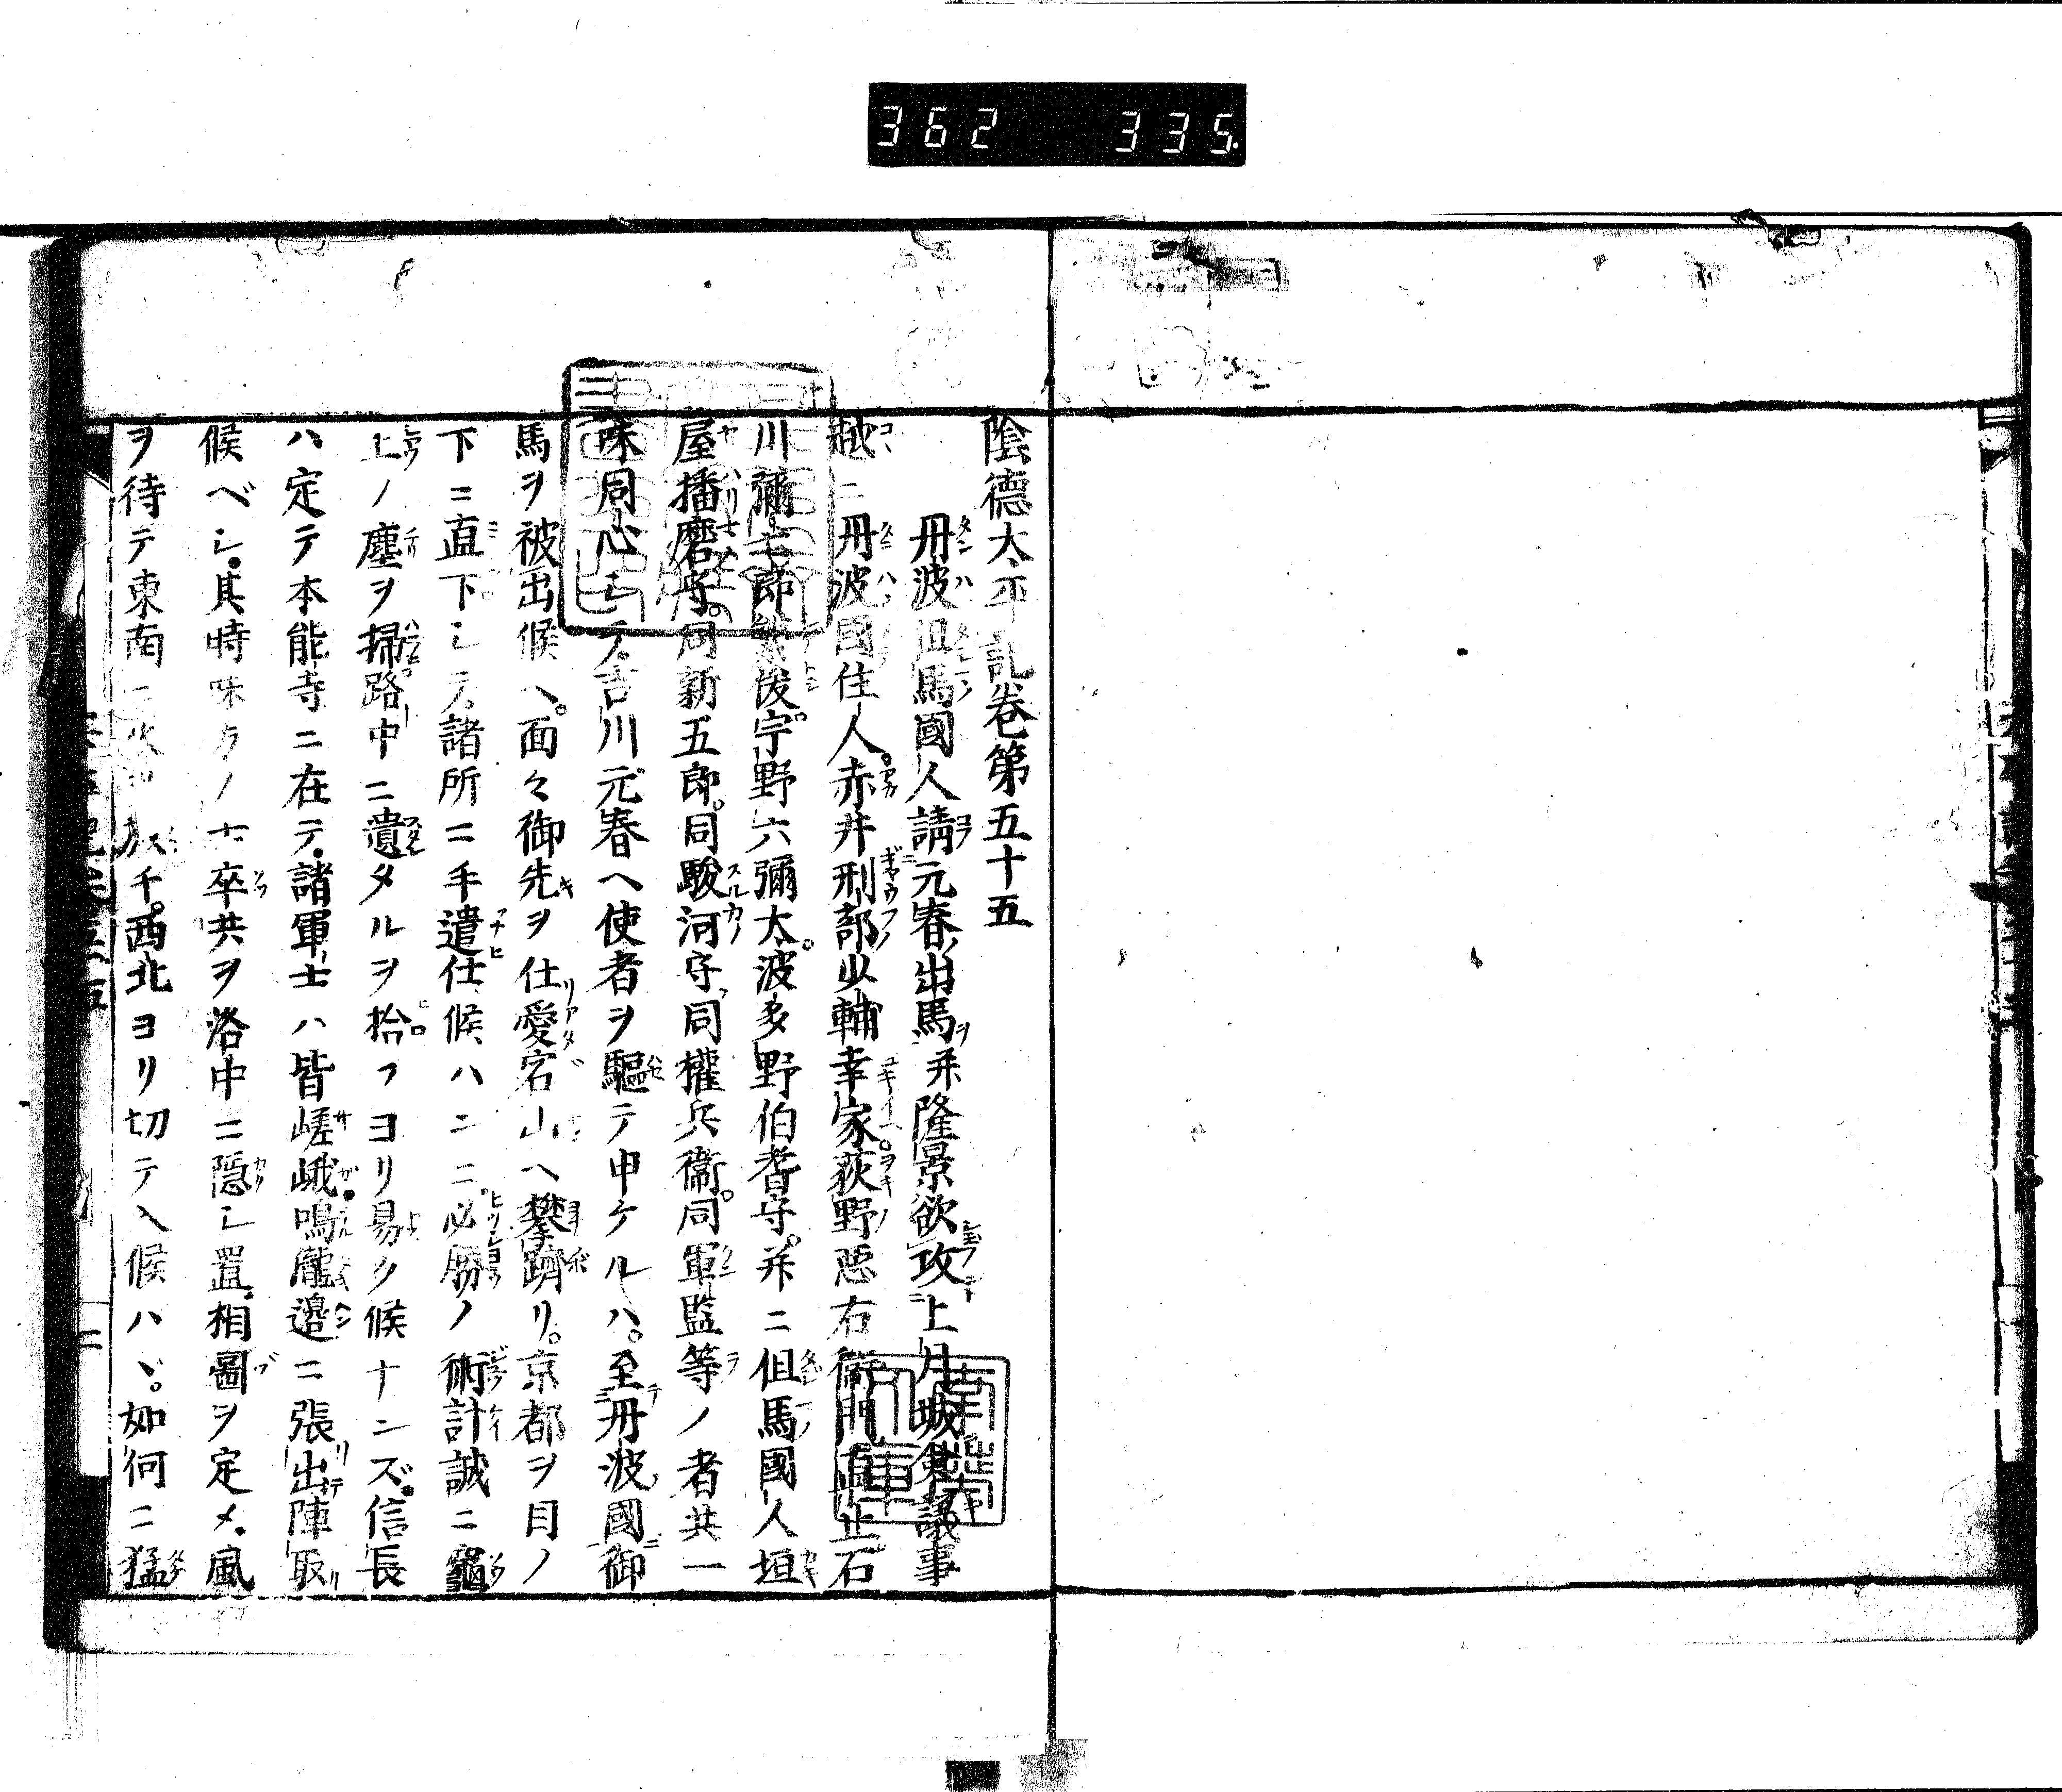 362 335
陰德太平記卷第五十五
丹波但馬國人請元春出馬并隆景欲攻上月城僉議事
越ニ丹波國住人赤井刑部少輔幸家荻野惡右衞門直正石
川彌七郎 後宇野六彌太波多野伯耆守并ニ但馬國人垣
屋播磨守同新五郎同駿河守同權兵衞同軍監等ノ者共一
味同心乄テ吉川元春ヘ使者ヲ驅テ申ケルハ至丹波國御
馬ヲ被出候ヘ面々御先ヲ仕愛宕山ヘ攀躋リ京都ヲ目ノ
下ニ直下シテ諸所ニ手遣仕候ハンニ必勝ノ術計誠ニ竈
上ノ塵ヲ掃路中ニ遺タルヲ拾フヨリ易ク候ナンズ信長
ハ定テ本能寺ニ在テ諸軍士ハ皆嵯峨鳴瀧邉ニ張出陣取
候ベシ其時味方ノ士卒共ヲ洛中ニ隱シ置相圖ヲ定メ風
ヲ待テ東南ニ火ヲ放チ西北ヨリ切テ入候ハヾ如何ニ猛